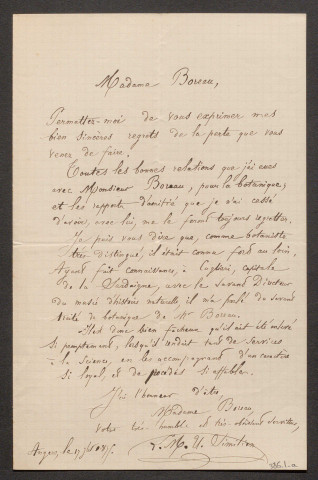 Madame Boreau,
Permettez-moi de vous exprimer mes
bien sincères regrets de la perte que vous
venez de faire.
Toutes les bonnes relations que j'ai eues
avec Monsieur Boreau, pour la botanique,
et les rapports d'amitié que je n'ai cessé
d'avoir, avec lui, me le feront toujours regretter.
Je puis vous dire que, comme botaniste
très distingué, il était connu fort au loin.
Ayant fait connaissance, à Cagliari, capitale
de la Sardaigne, avec le savant Directeur
du musée d'histoire naturelle, il m'a parlé du savant
traité de botanique de Mr Boreau.
Il est donc bien fâcheux qu'il ait été enlevé
si promptement, lorsqu'il rendait tant de services
à la science, en les accompagnant d'un caractère
si loyal, et de procédés si affables.
J'ai l'honneur d'être,
Madame Boreau
Votre très humble et très obéissant serviteur,
Angers, le